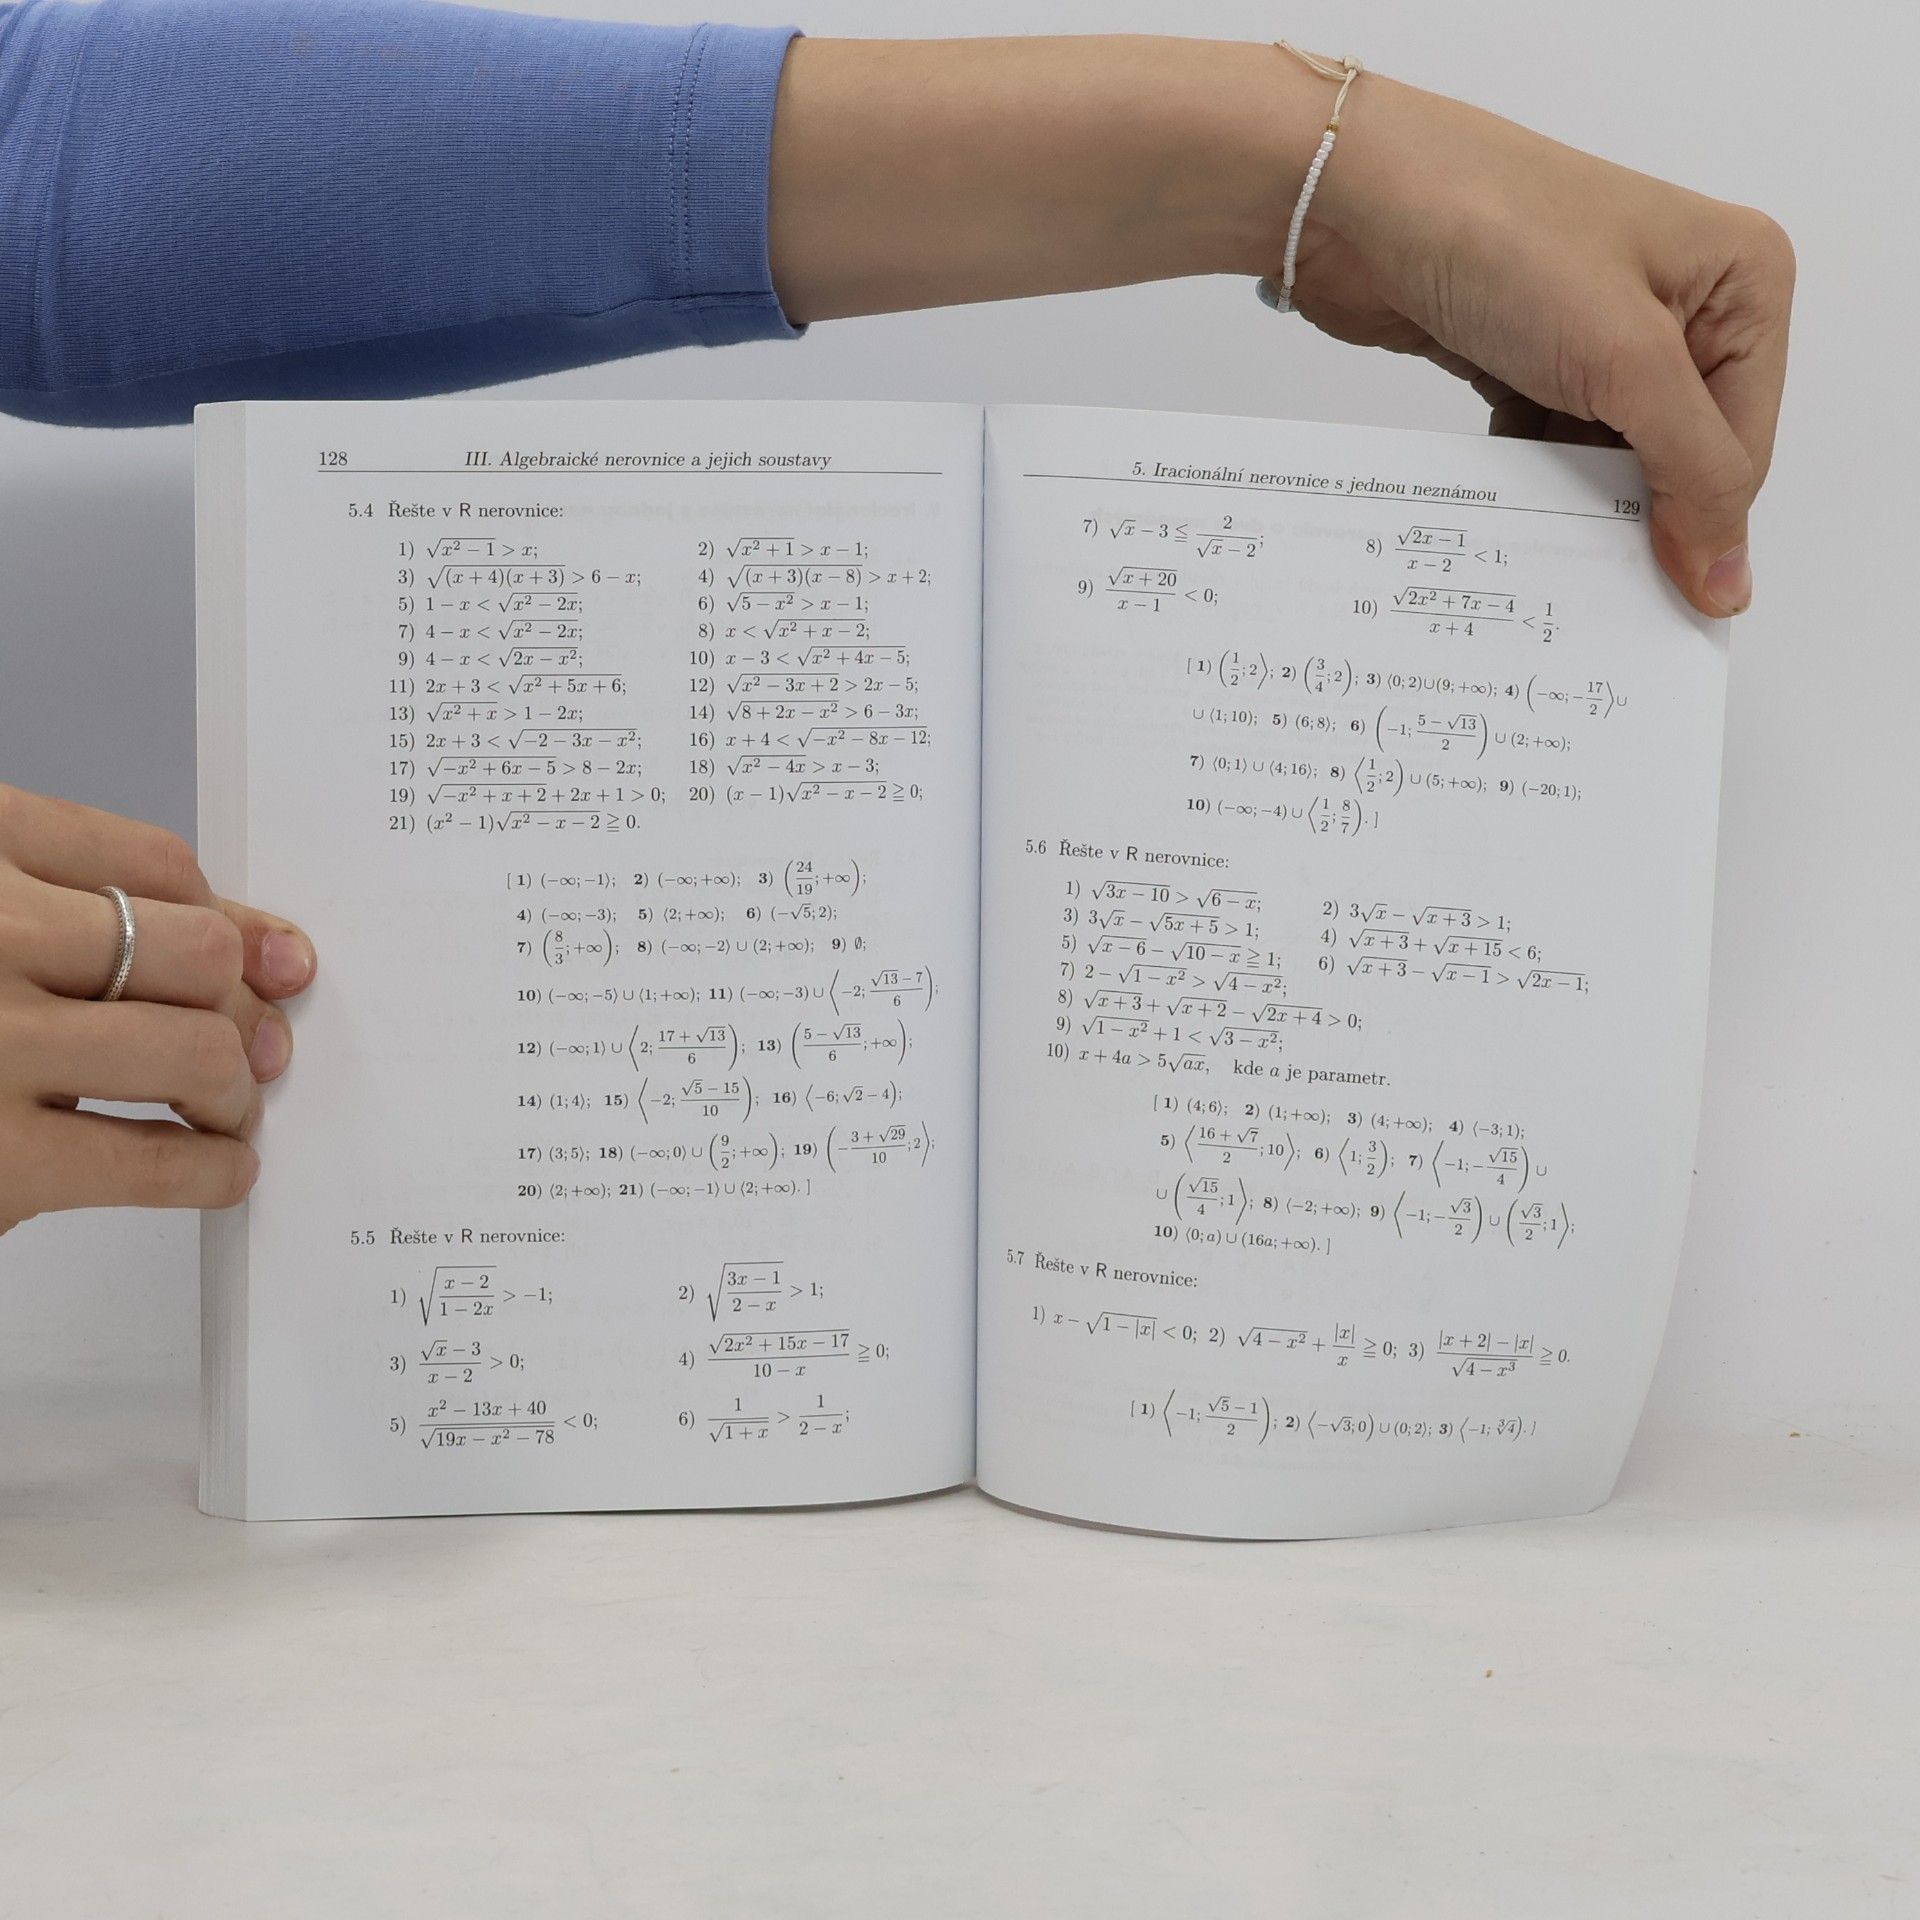 128 III. Algebraické nerovnice a jejich soustavy
5.4 Řešte v R nerovnice:
1) √(x² − 1) > x; 2) √(x² + 1) > x − 1;
3) √((x + 4)(x + 3)) > 6 − x; 4) √((x + 3)(x − 8)) > x + 2;
5) 1 − x < √(x² − 2x); 6) √(5 − x²) > x − 1;
7) 4 − x < √(x² − 2x); 8) x < √(x² + x − 2);
9) 4 − x < √(2x − x²); 10) x − 3 < √(x² + 4x − 5);
11) 2x + 3 < √(x² + 5x + 6); 12) √(x² − 3x + 2) > 2x − 5;
13) √(x² + x) > 1 − 2x; 14) √(8 + 2x − x²) > 6 − 3x;
15) 2x + 3 < √(−2 − 3x − x²); 16) x + 4 < √(−x² − 8x − 12);
17) √(−x² + 6x − 5) > 8 − 2x; 18) √(x² − 4x) > x − 3;
19) √(−x² + x + 2) + 2x + 1 > 0; 20) (x − 1)√(x² − x − 2) ≧ 0;
21) (x² − 1)√(x² − x − 2) ≧ 0.
[ 1) (−∞; −1⟩; 2) (−∞; +∞); 3) (24/19; +∞);
4) (−∞; −3⟩; 5) ⟨2; +∞); 6) ⟨−√5; 2);
7) (8/3; +∞); 8) (−∞; −2⟩ ∪ (2; +∞); 9) ∅;
10) (−∞; −5⟩ ∪ ⟨1; +∞); 11) (−∞; −3⟩ ∪ ⟨−2; (√13 − 7)/6);
12) (−∞; 1⟩ ∪ ⟨2; (17 + √13)/6); 13) ((5 − √13)/6; +∞);
14) (1; 4⟩; 15) ⟨−2; (√5 − 15)/10); 16) ⟨−6; √2 − 4);
17) (3; 5⟩; 18) (−∞; 0⟩ ∪ (9/2; +∞); 19) (−(3 + √29)/10; 2⟩;
20) ⟨2; +∞); 21) (−∞; −1⟩ ∪ ⟨2; +∞). ]
5.5 Řešte v R nerovnice:
1) √((x − 2)/(1 − 2x)) > −1; 2) √((3x − 1)/(2 − x)) > 1;
3) (√x − 3)/(x − 2) > 0; 4) √(2x² + 15x − 17)/(10 − x) ≧ 0;
5) (x² − 13x + 40)/√(19x − x² − 78) < 0; 6) 1/√(1 + x) > 1/(2 − x);
5. Iracionální nerovnice s jednou neznámou 129
7) √x − 3 ≦ 2/(√x − 2); 8) √(2x − 1)/(x − 2) < 1;
9) √(x + 20)/(x − 1) < 0; 10) √(2x² + 7x − 4)/(x + 4) < 1/2.
[ 1) (1/2; 2⟩; 2) (3/4; 2); 3) ⟨0; 2) ∪ (9; +∞); 4) (−∞; −17/2⟩ ∪
∪ ⟨1; 10); 5) (6; 8); 6) (−1; (5 − √13)/2) ∪ (2; +∞);
7) ⟨0; 1⟩ ∪ (4; 16⟩; 8) ⟨1/2; 2) ∪ (5; +∞); 9) ⟨−20; 1);
10) (−∞; −4) ∪ ⟨1/2; 8/7). ]
5.6 Řešte v R nerovnice:
1) √(3x − 10) > √(6 − x); 2) 3√x − √(x + 3) > 1;
3) 3√x − √(5x + 5) > 1; 4) √(x + 3) + √(x + 15) < 6;
5) √(x − 6) − √(10 − x) ≧ 1; 6) √(x + 3) − √(x − 1) > √(2x − 1);
7) 2 − √(1 − x²) > √(4 − x²);
8) √(x + 3) + √(x + 2) − √(2x + 4) > 0;
9) √(1 − x²) + 1 < √(3 − x²);
10) x + 4a > 5√(ax), kde a je parametr.
[ 1) (4; 6⟩; 2) (1; +∞); 3) (4; +∞); 4) ⟨−3; 1);
5) ⟨(16 + √7)/2; 10⟩; 6) ⟨1; 3/2); 7) ⟨−1; −√15/4) ∪
∪ (√15/4; 1⟩; 8) ⟨−2; +∞); 9) ⟨−1; −√3/2) ∪ (√3/2; 1⟩;
10) ⟨0; a) ∪ (16a; +∞). ]
5.7 Řešte v R nerovnice:
1) x − √(1 − |x|) < 0; 2) √(4 − x²) + |x|/x ≧ 0; 3) (|x + 2| − |x|)/√(4 − x³) ≧ 0.
[ 1) ⟨−1; (√5 − 1)/2); 2) ⟨−√3; 0) ∪ (0; 2⟩; 3) ⟨−1; ∛4). ]